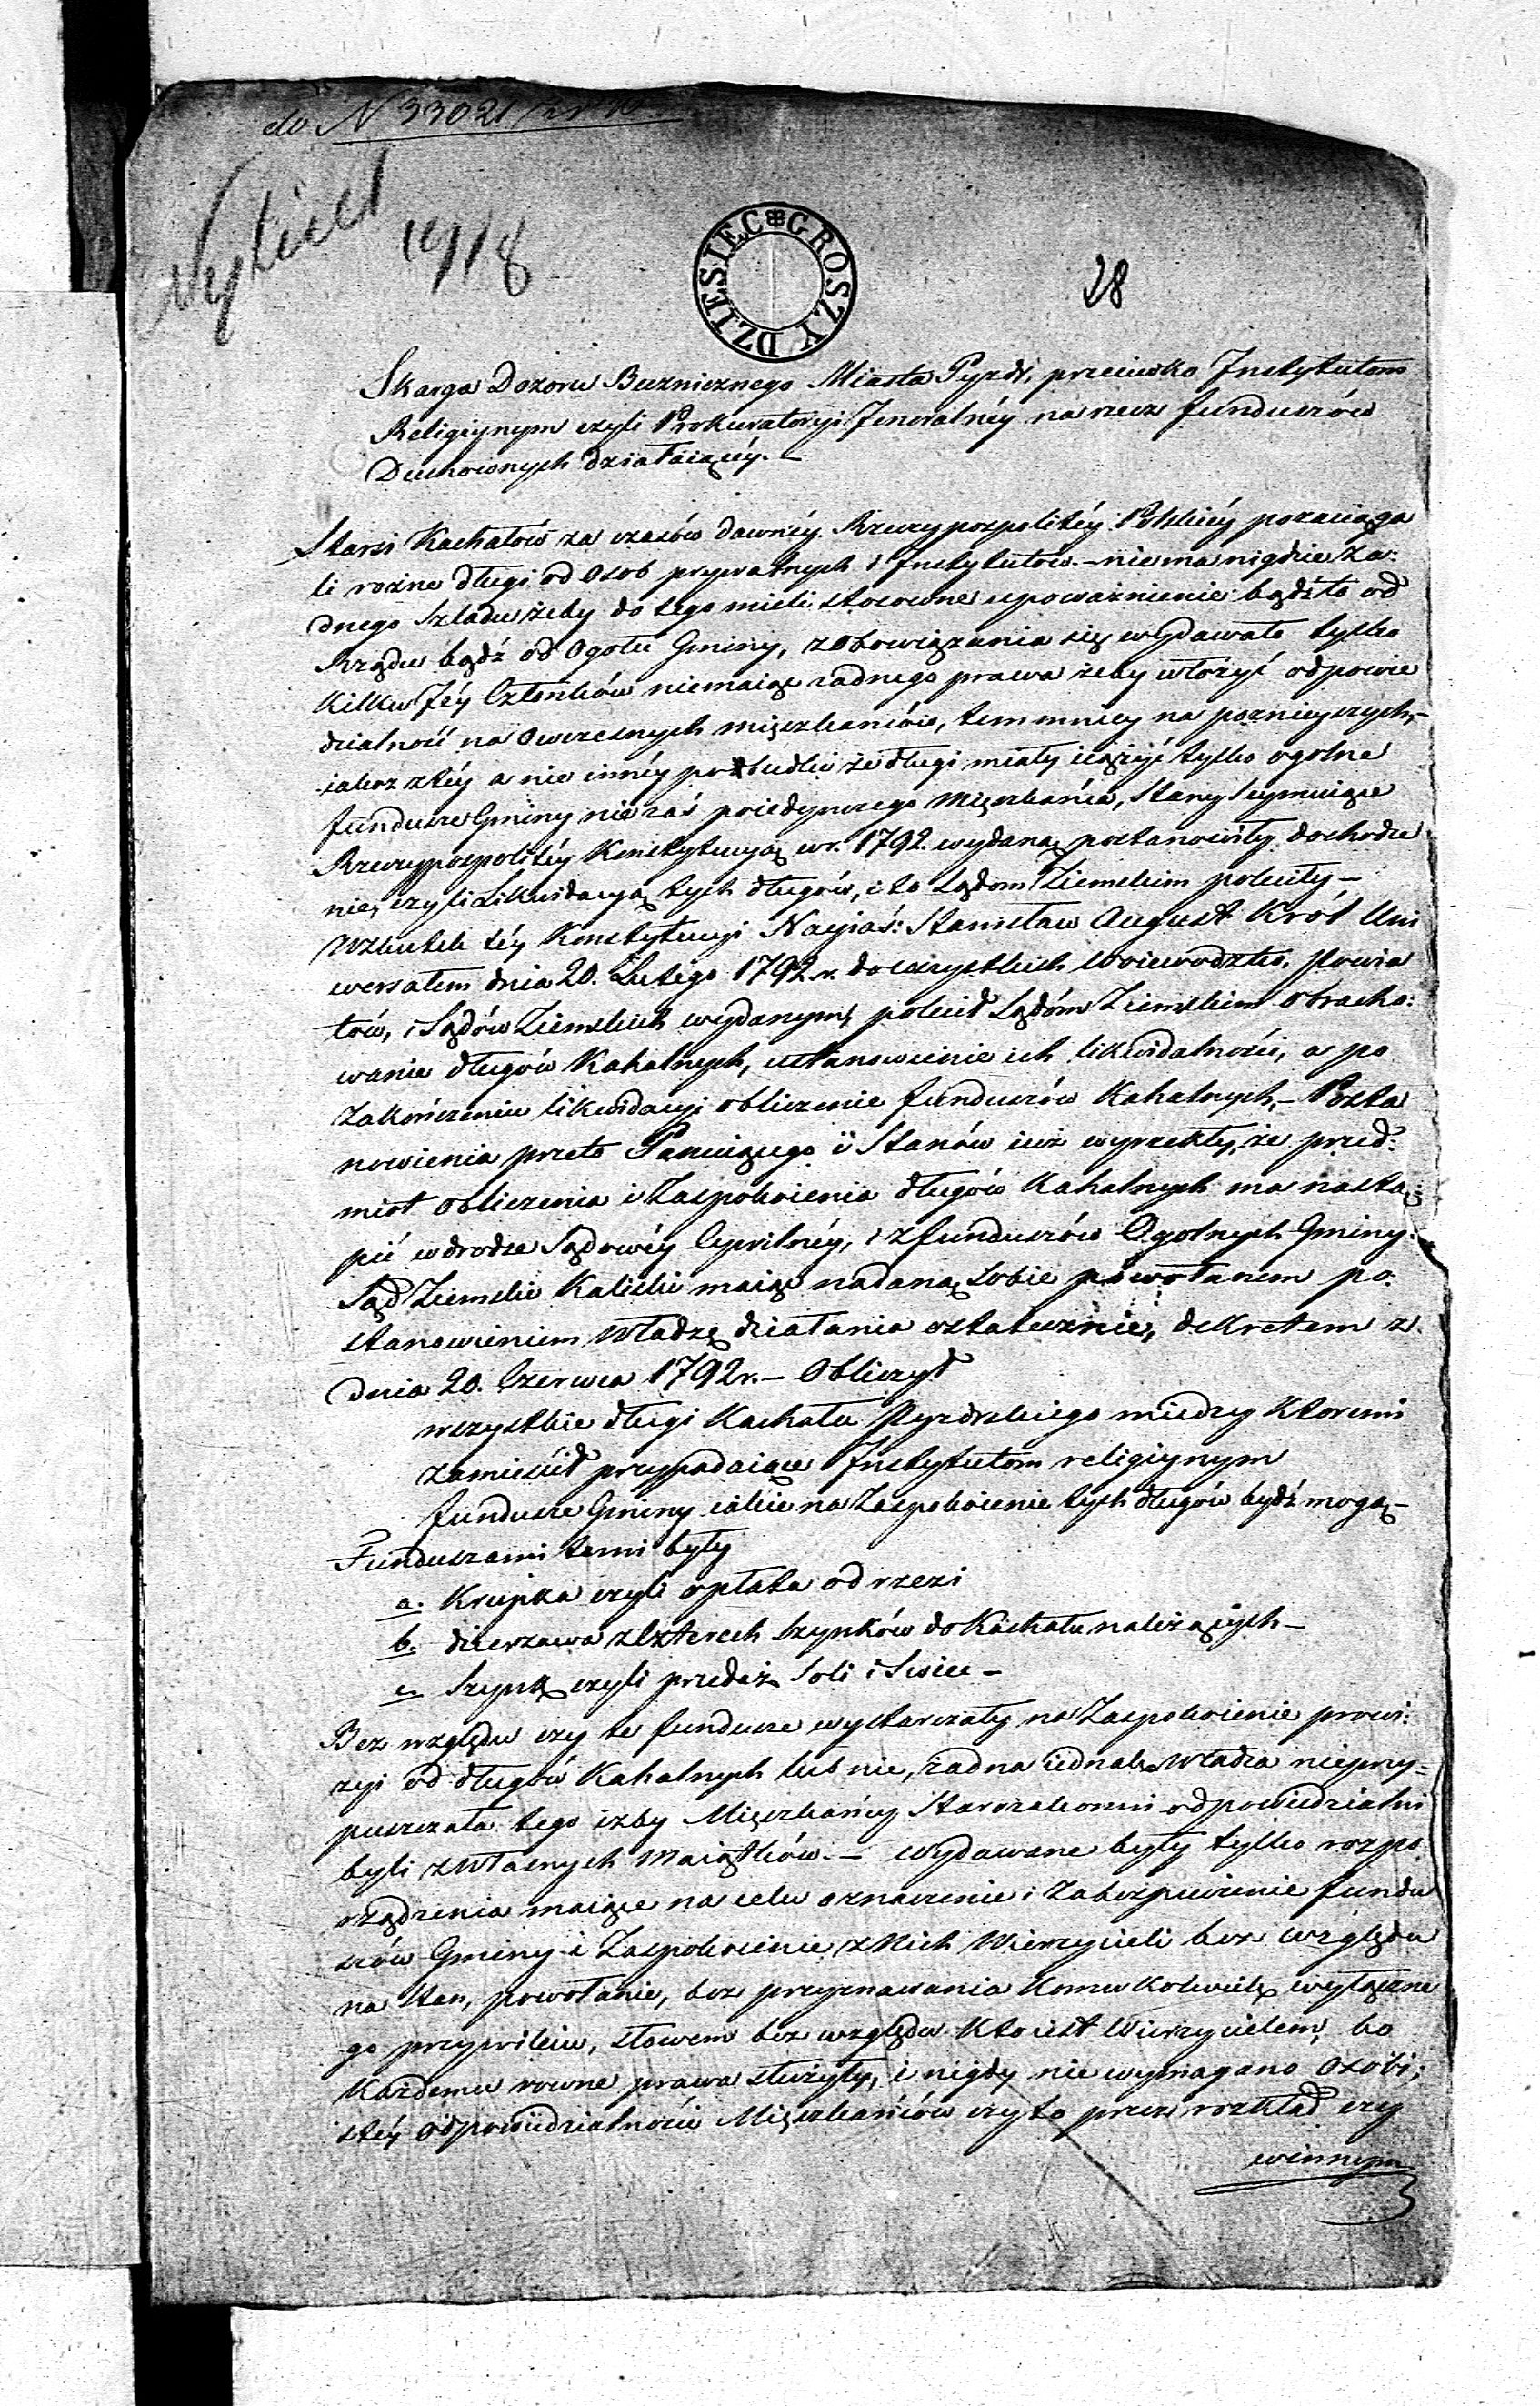 do N 33021
1918
DZIESIEC GROSZY
28
Skarga Dozoru Buznicznego Miasta Pyzdr, przeciwko Instytutom
Religiynym czyli Prokuratoryi Jeneralnéy na rzecz funduszów
Duchownych działaiącéy. –
Starsi Kachałów za czasów dawnéy Rzeczypospolitéy Polskiéy pozaciąga
li rożne długi od Osob prywatnych i Instytutów. – niema nigdzie ża:
dnego szladu żeby do tego mieli stosowne upoważnienie bądź to od
Rządu bądź od Ogołu Gminy, zobowiązania się wydawało tylko
kilku Jéy Członków niemaiąc żadnego prawa żeby włożyć odpowie
dzialność na Owczesnych mięszkańców, tem mniey na poznieyszych, –
iakoż z téy a nie innéy pobudki że długi miały ciążyć tylko ogolne
fundusze Gminy nie zaś poiedynczego Mięszkańca, Stany Seymuiące
Rzeczypospolitéy Konstytucyą w r. 1792 wydaną postanowiły dochodze
nie, czyli Likwidacyą tych długów, i to Sądom Ziemskim poleciły –
Wskutek téy Konstytucyi Nayiaś: Stanisław August Król Uni
wersałem dnia 20. Lutego 1792 r. do wszystkich Woiewodztw, Powia
tów, i Sądów Ziemskich wydanym, polecił Sądóm Ziemskim obracho:
wanie długów Kahalnych, ustanowienie ich likwidalności, a po
Zakończeniu likwidacyi obliczenie funduszów Kahalnych, – Posta
nowienia przeto Panuiącego i Stanów iuż wyrzekły, że przed:
miot obliczenia i Zaspokoienia długów Kahalnych ma nastą:
pić w drodze Sądowéy Cywilnéy, i z funduszów Ogolnych Gminy.
Sąd Ziemski Kaliski maiąc nadaną sobie powołanem po:
stanowieniem Władzę działania ostatecznie, dekretem z
dnia 20. Czerwca 1792 r. – Obliczył
wszystkie długi Kachału Pyzdrskiego miedzy Ktoremi
zamieścił przypadaiące Instytutom religiynym
fundusze Gminy iakie na Zaspokoienie tych długów bydź mogą –
Funduszami temi były
a. Krupka czyli opłata od rzezi
b. dzierzawa z Czterech Szynków do Kachału należących –
c. Szynk czyli przedaż Soli i Swiec –
Bez względu czy te fundusze wystarczały na Zaspokoienie prowi:
zyi od długów Kahalnych lub nie, żadna iednak Władza nieprzy=
puszczała tego iżby Mięszkańcy Starozakonni odpowiedzialni
byli z własnych Maiątków. – wydawane były tylko rozpo
rządzenia maiące na celu oznaczenie i Zabezpieczenie fundu
szów Gminy i Zaspokoienie z Nich Wierzycieli bez względu
na Stan, powołanie, bez przyznawania komukolwiek wyłączne
go przywileiu, słowem bez względu Kto iest Wierzycielem, bo
Każdemu rowne prawa służyły, i nigdy nie wymagano Osobi:
stéy odpowiedzialności Mięszkańców czy to przez rozkład czy
winnym